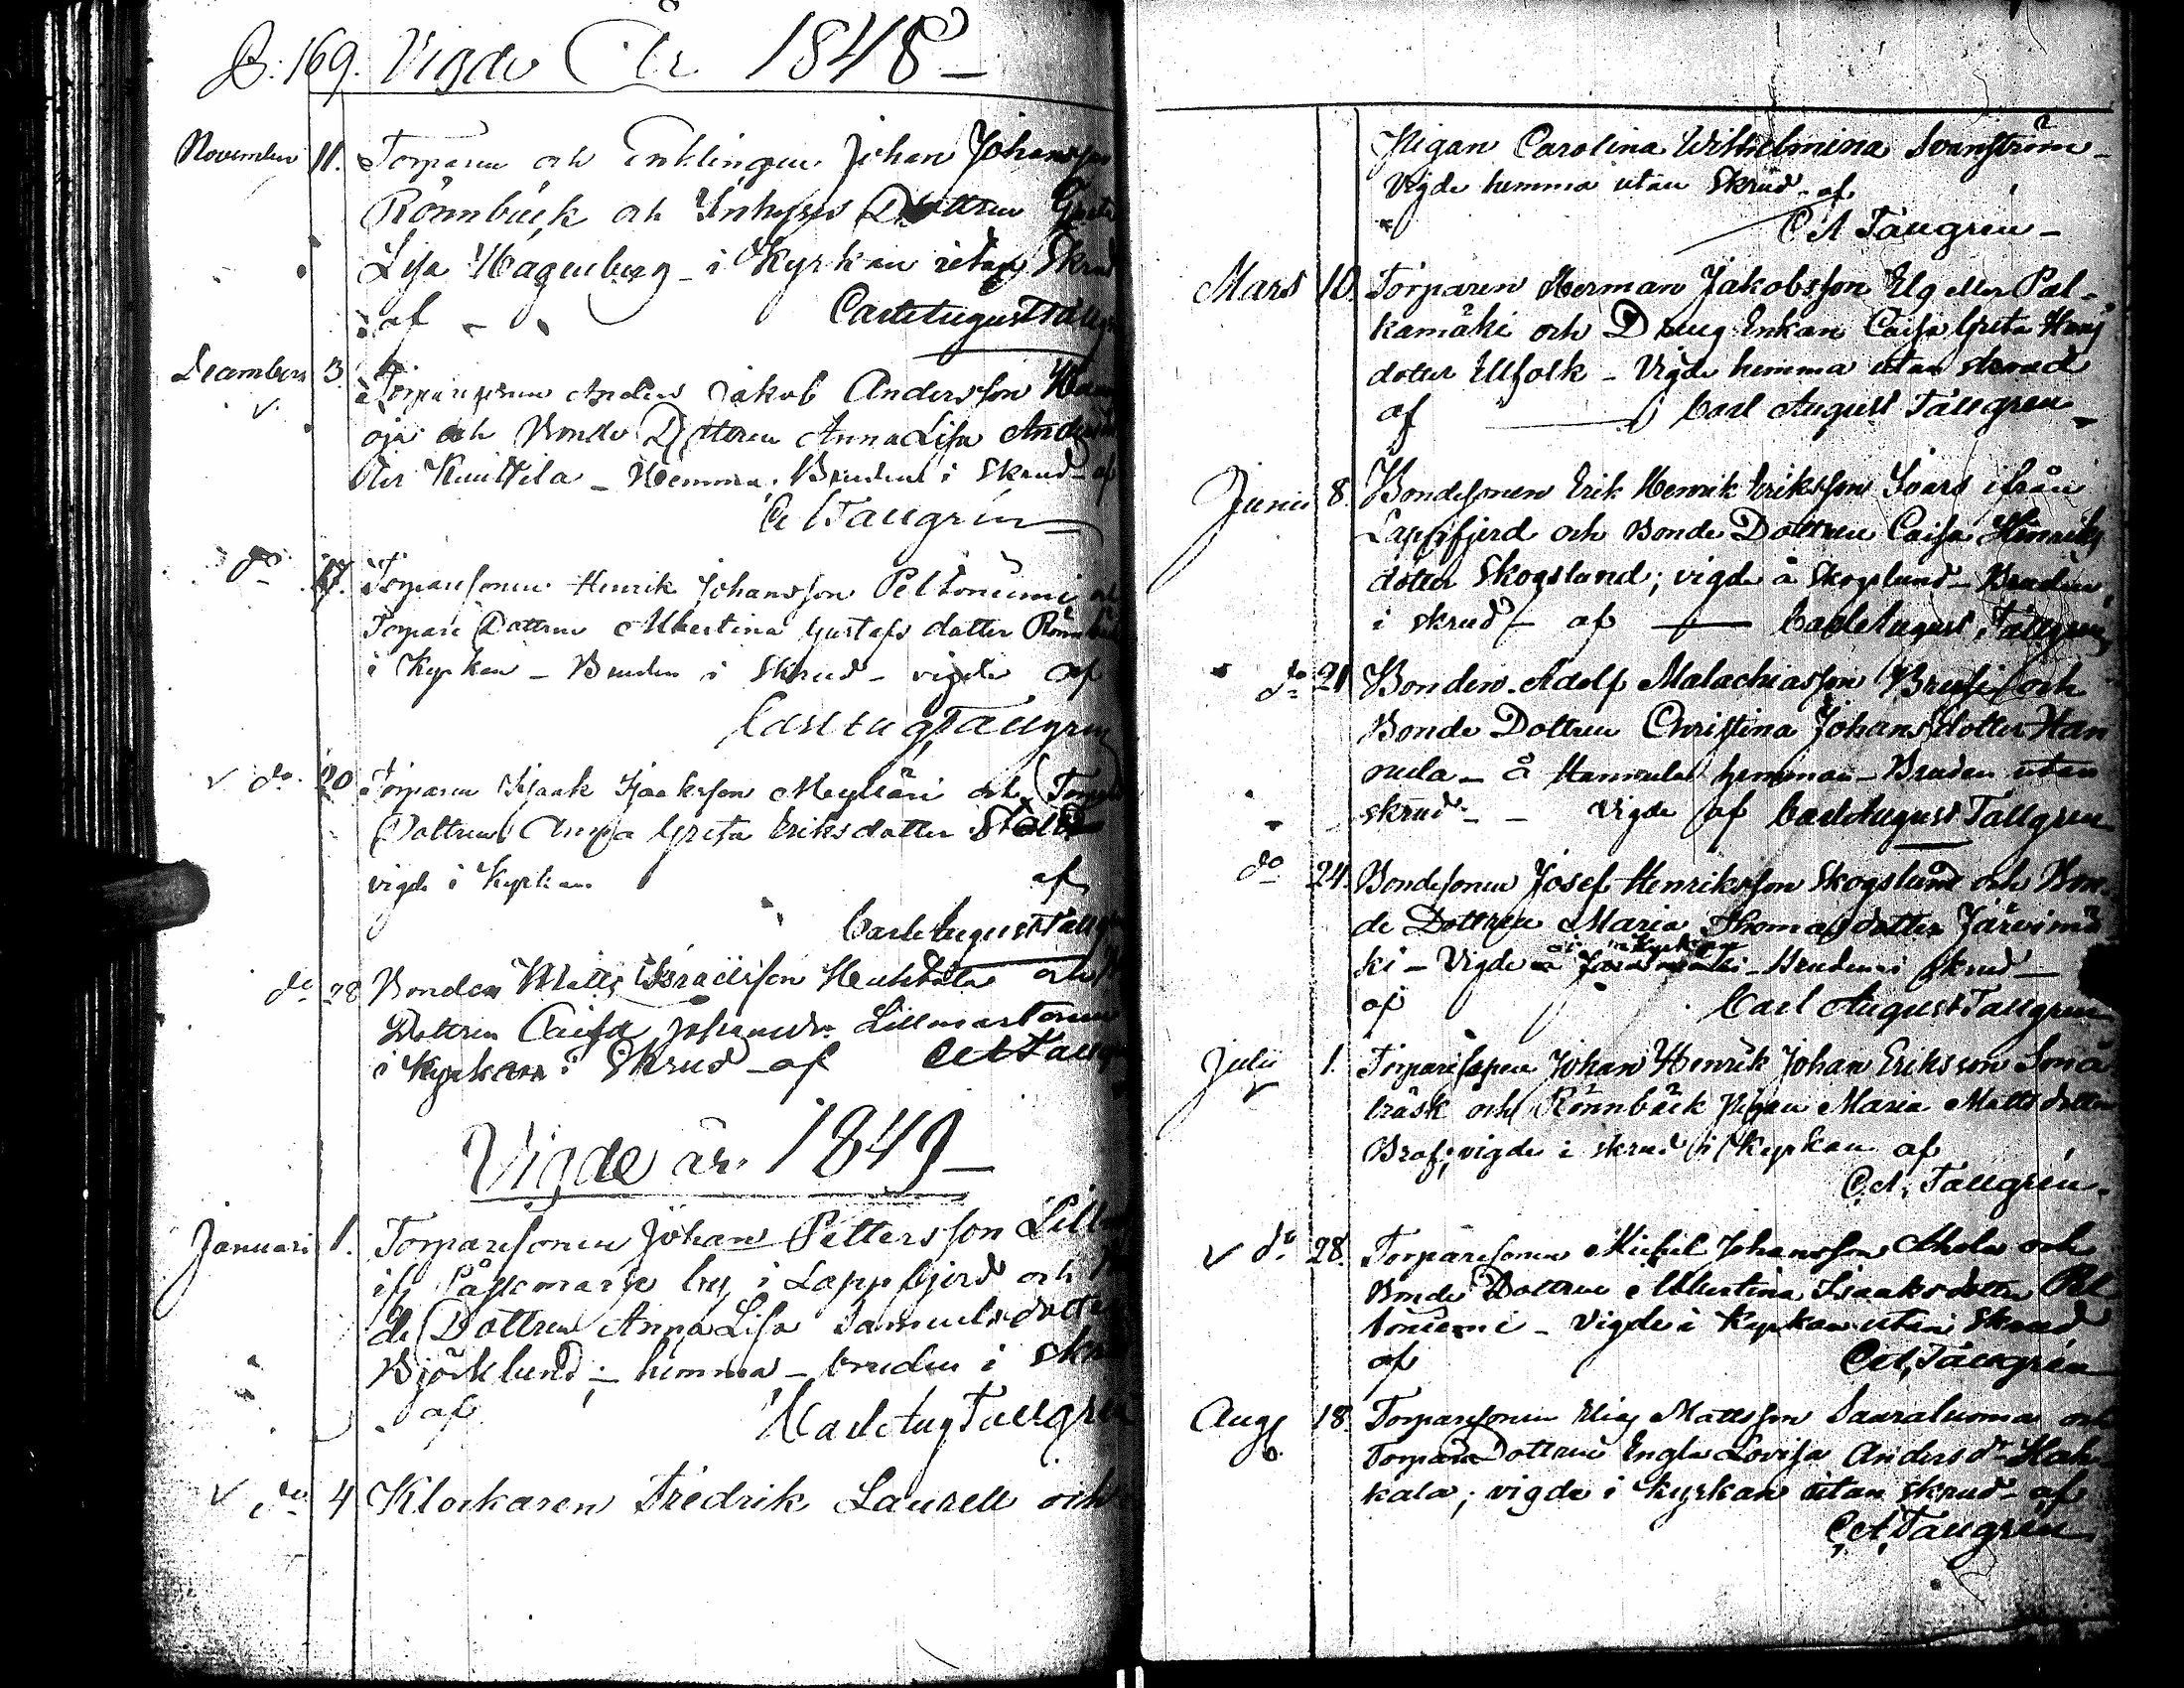 P: 169. Vigde År 1848 –
November 11. Torparen och Enklingen Johan Johansson
Rönnback och Inhyses Dottren Greta
Lisa Hagenberg – i Kyrkan utan Skrud
af – Carl August Tallgren
December 3. Torparesonen Anders Jakob Andersson
oja och Bonde Dottren Anna Lisa Anders
dtr Knuttila – Hemma. Bruden i Skrud – af
C A Tallgren
do 17. Torparesonen Henrik Johansson Peltoniemi
Torpare Dottren Albertina Gustafs dotter Rönnback
i Kyrkan – Bruden i Skrud – vigde af
Carl Aug Tallgren
do 20 Torparen Isaak Isaksson Mylläri och Torpare
Dottren Anna Greta Eriksdotter
vigde i Kyrkan af
Carl August Tallgren
do 28 Bonden Matts Israelsson Huhtala och
Dottren Caisa Johansdr Lillmartonen
i Kyrkan i Skrud – af C A Tallgren
Vigde år 1849 –
Januari 1. Torparesonen Johan Pettersson
ifr Påskmark by i Lappfjerd och
de Dottren Anna Lisa Samuelsdotter
Björklund – hemma – bruden i skrud
af Carl Aug Tallgren
do 4 Klockaren Fredrik Laurell och
Pigan Carolina Wilhelmina Svanström –
Vigde hemma utan Skrud – af
C A Tallgren –
Mars 10. Torparen Herman Jakobsson Elg eller Pal-
kamäki och Dreng Enkan Caisa Greta Hans
dotter Ulfolk – Vigde hemma utan skrud
af Carl August Tallgren –
Junii 8. Bondesonen Erik Henrik Eriksson Ivars ifrån
Lappfjerd och Bonde Dottren Caisa Henriks
dotter Skogslund; vigde å Skogslund – Bruden
i skrud – af – Carl August Tallgren
do 21 Bonden Adolf Malachiasson Brusi och
Bonde Dottren Christina Johansdotter Han
nula – å Hannula hemman – Bruden utan
skrud – – Vigde af Carl August Tallgren
do 24. Bondesonen Josef Henriksson Skogslund och Bon-
de Dottren Maria Thomasdotter Järvimä
ki – Vigde i Kyrkan – Bruden i skrud –
af Carl August Tallgren
Julii 1. Torparesonen Johan Henrik Johan Eriksson Små
träsk och Rönnbäck Pigan Maria Matts dotter
Braf, vigde i skrud i Kyrkan af
C.A. Tallgren.
do 28. Torparesonen Mickel Johansson Ahola och
Bonde Dottren Albertina Isaaksdotter Pel
toniemi – Vigde i Kyrkan utan Skrud
af C A Tallgren
Aug 18. Torparesonen Elias Mattsson Saaraluoma och
Torpare Dottren Engla Lovisa Anders dr Hak-
kala; vigde i kyrkan utan skrud – af
C A Tallgren